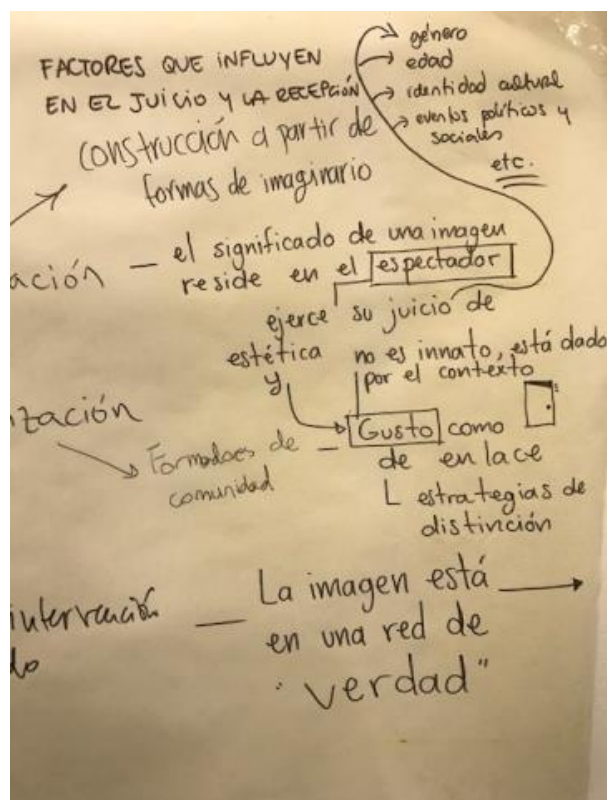 FACTORES QUE INFLUYEN
EN EL JUICIO Y LA RECEPCIÓN
género
edad
identidad cultural
eventos políticos y
sociales
etc.
construcción a partir de
formas de imaginario
ación — el significado de una imagen
reside en el espectador
ejerce su juicio de
estética no es innato, está dado
y por el contexto
ización
Formadores de — Gusto como
comunidad de enlace
estrategias de
distinción
intervención — La imagen está
do en una red de
"verdad"